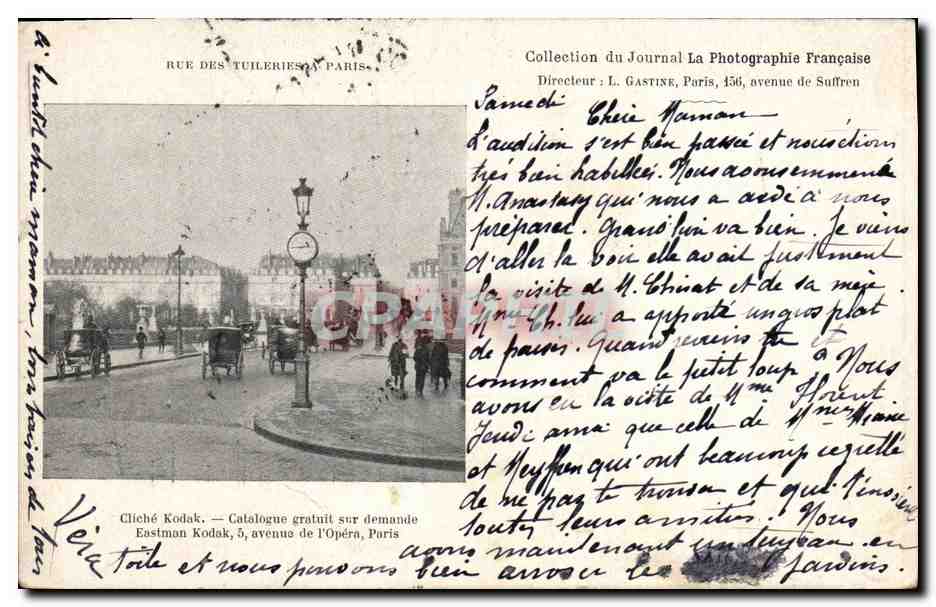 RUE DES TUILERIES A PARIS
Collection du Journal La Photographie Française
Directeur : L. GASTINE, Paris, 156, avenue de Suffren
Samedi
Chère Maman
L'audition s'est bien passée et nous étions
très bien habillées. Nous avons emmené
M. Anastasy qui nous a aidé à nous
préparer. Grand'lin va bien. Je viens
d'aller la voir elle avait justement
la visite de M. Chirat et de sa mère.
Mme Ch. lui a apporté un gros plat
de fraises. Quand reviens tu et
comment va le petit loup? Nous
avons eu la visite de Mme Florent
Jeudi ainsi que celle de Mmes
et Meyffren qui ont beaucoup regretté
de ne pas te trouver et qui t'envoient
toutes leurs amitiés. Nous
avons maintenant un tuyau en
toile et nous pouvons bien arroser les jardins.
A bientôt chère maman, gros baisers de tous
Véra
CARPO
Cliché Kodak. — Catalogue gratuit sur demande
Eastman Kodak, 5, avenue de l'Opéra, Paris